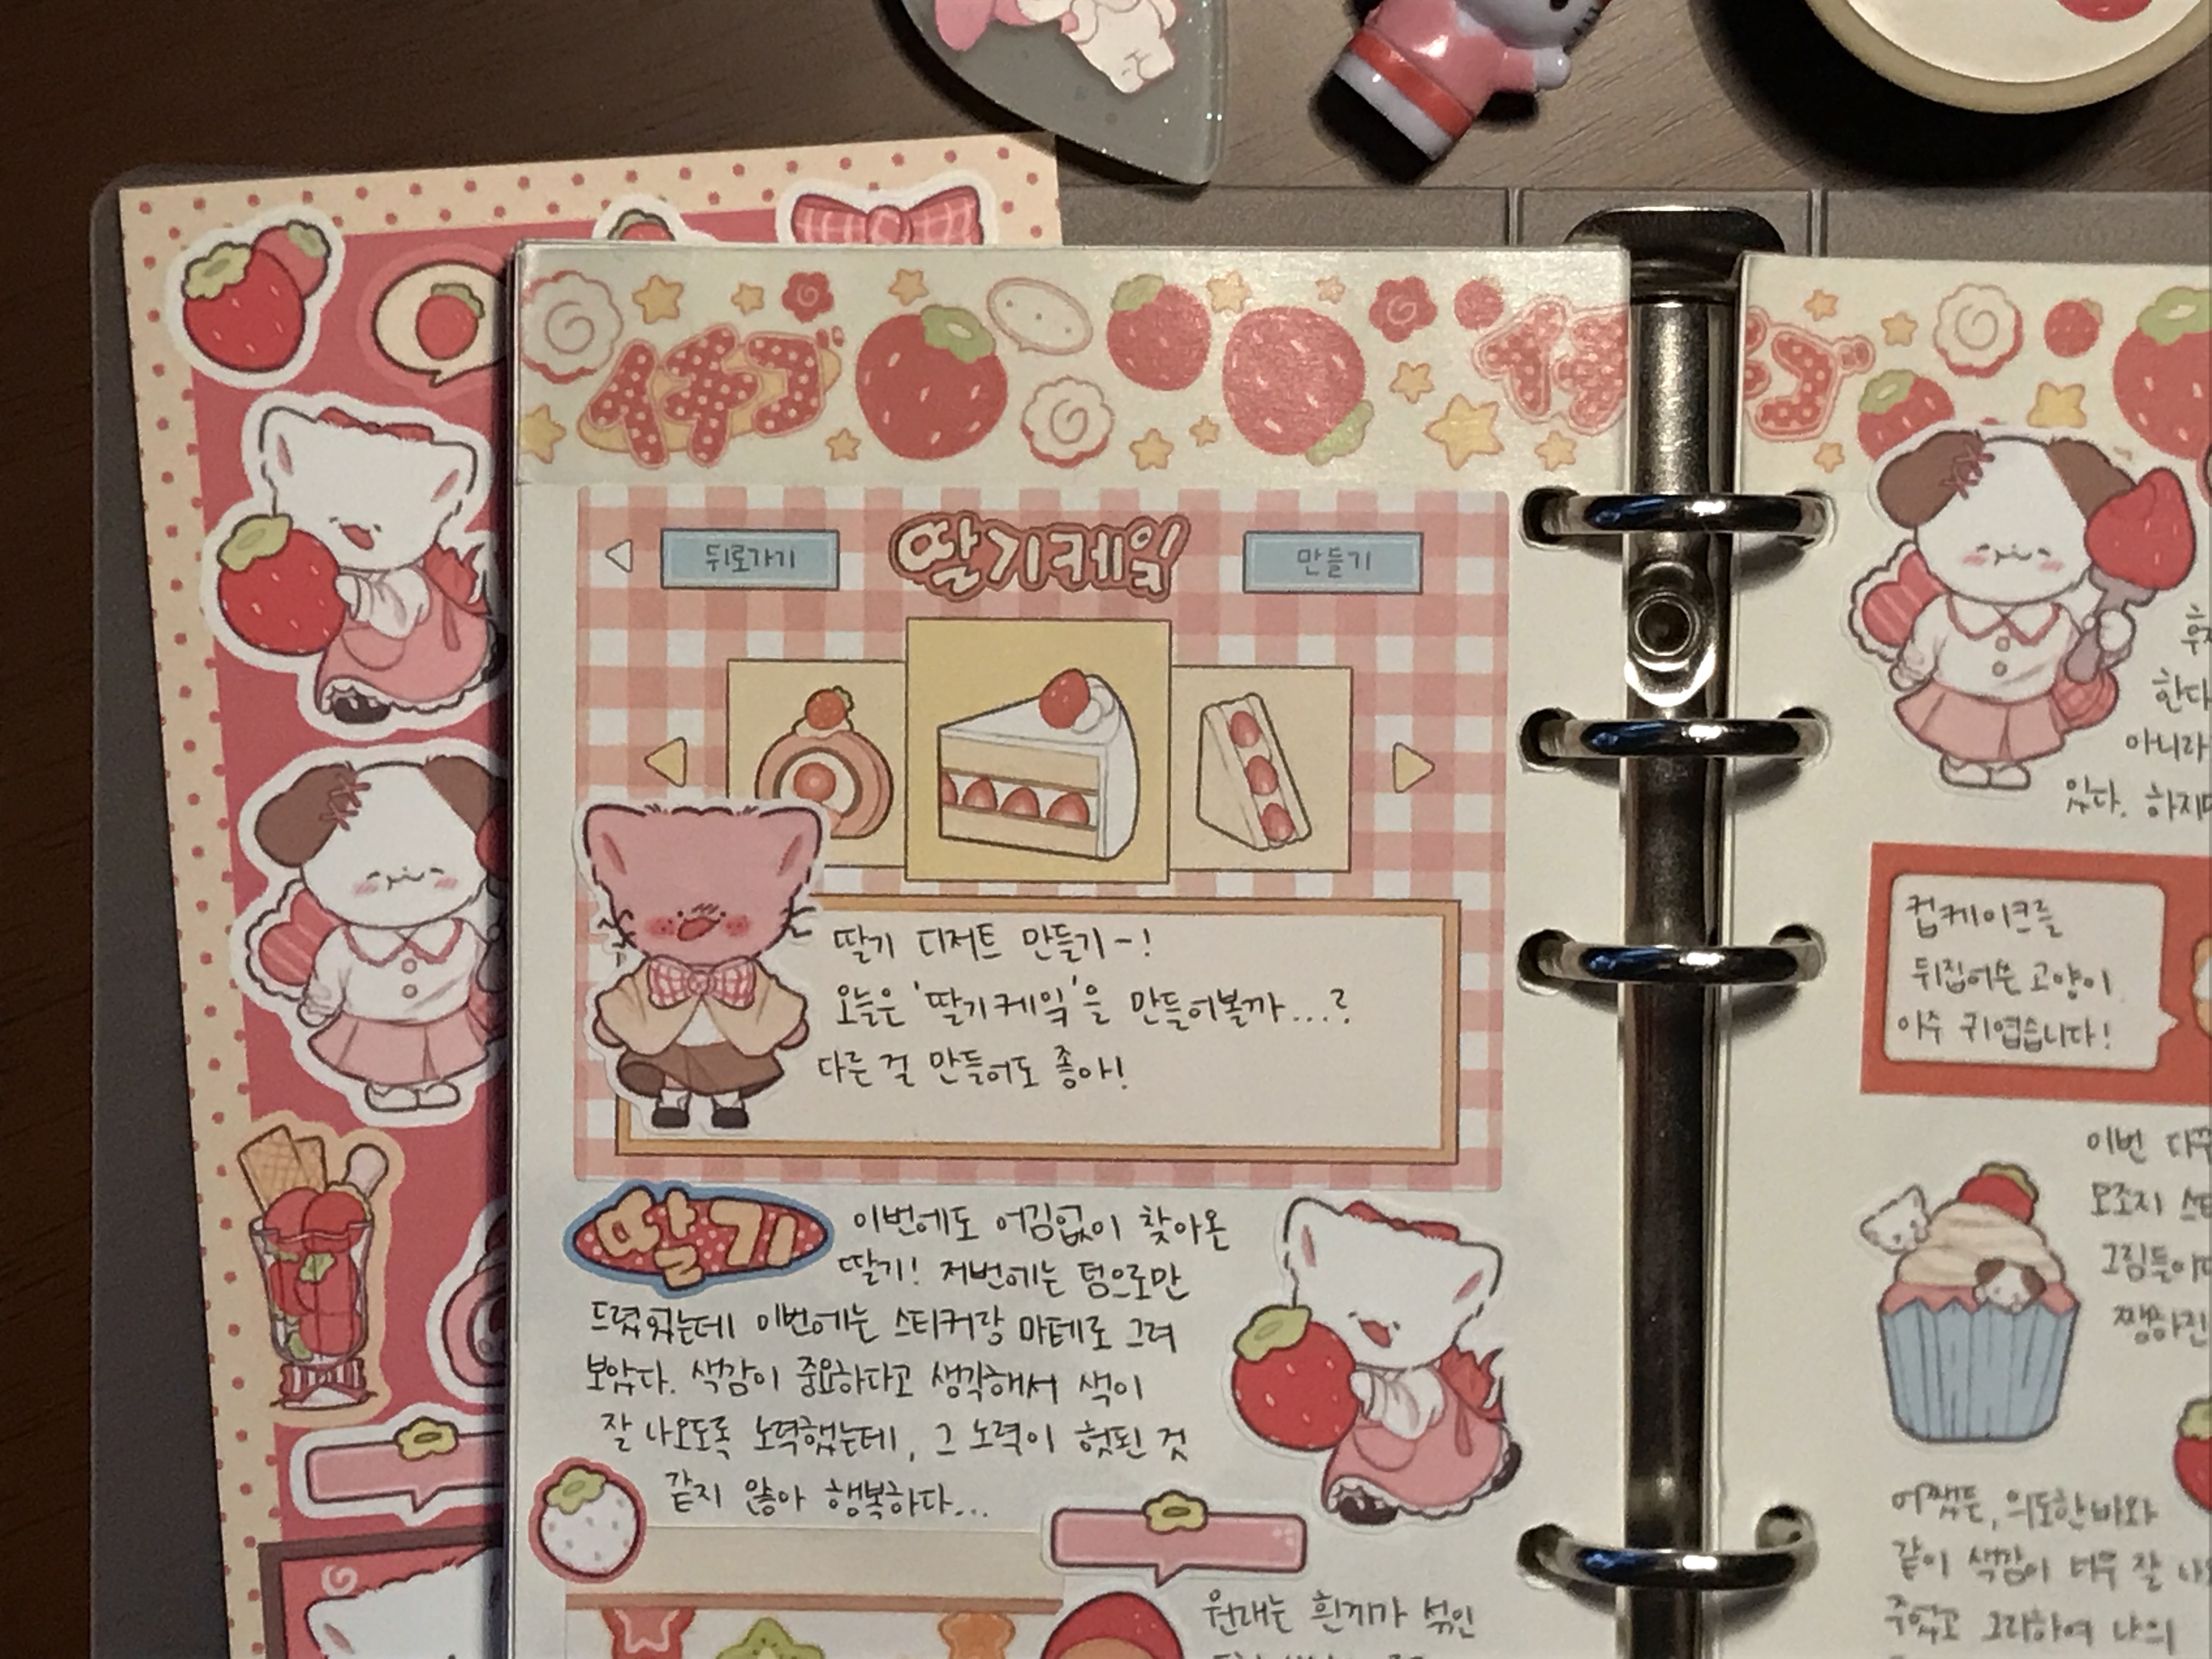 イチゴ
イチ
ゴ
뒤로가기
딸기케잌
만들기
딸기 디저트 만들기~!
오늘은 '딸기케잌'을 만들어볼까...?
다른 걸 만들어도 좋아!
딸기
이번에도 어김없이 찾아온
딸기! 저번에는 덤으로만
드렸었는데 이번에는 스티커랑 마테로 그려
보았다. 색감이 중요하다고 생각해서 색이
잘 나오도록 노력했는데, 그 노력이 헛된 것
같지 않아 행복하다...
원래는 흰끼가 섞인
한다
아니라
있다. 하지만
컵케이크를
뒤집어쓴 고양이
아주 귀엽습니다!
이번
모조지
그림들이
쨍하진
어쨌든, 의도한바와
같이 색감이 너무 잘
주었고 그리하여 나의